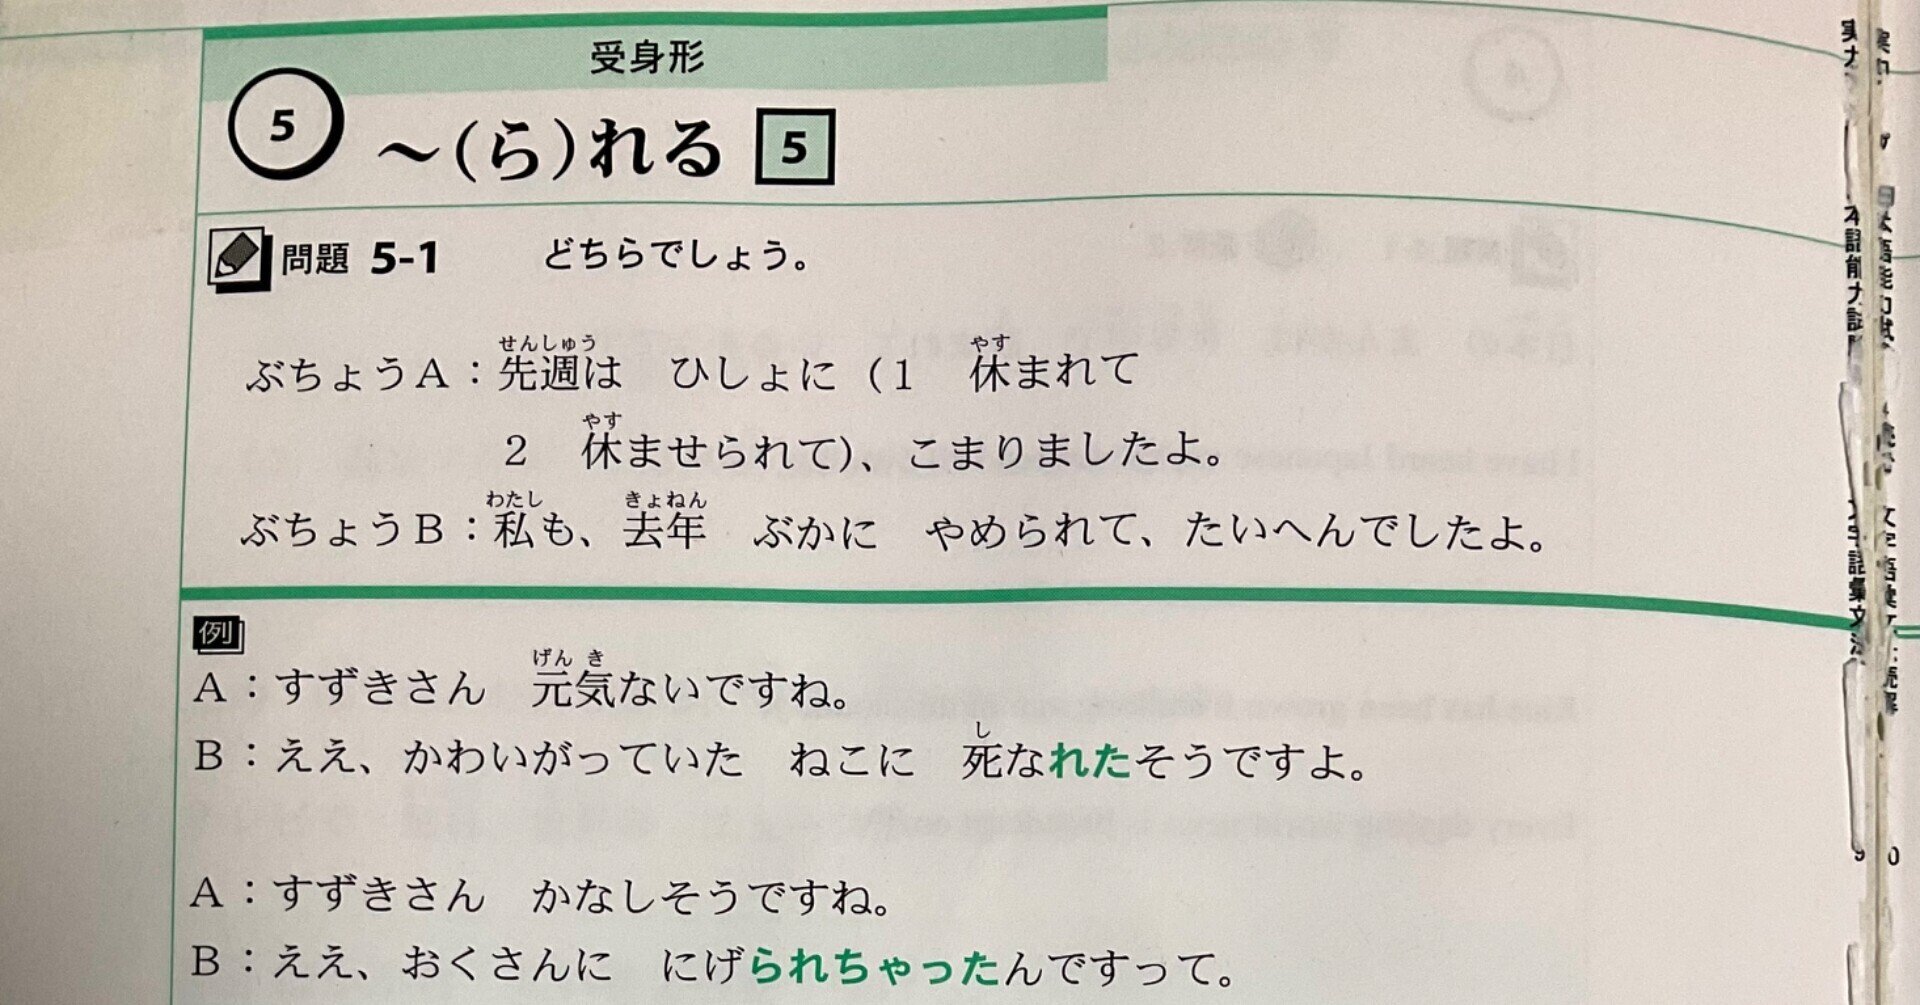 受身形
5 ～(ら)れる 5
問題 5-1 どちらでしょう。
ぶちょうA：先週は ひしょに (1 休まれて
2 休ませられて)、こまりましたよ。
ぶちょうB：私も、去年 ぶかに やめられて、たいへんでしたよ。
例
A：すずきさん 元気ないですね。
B：ええ、かわいがっていた ねこに 死なれたそうですよ。
A：すずきさん かなしそうですね。
B：ええ、おくさんに にげられちゃったんですって。